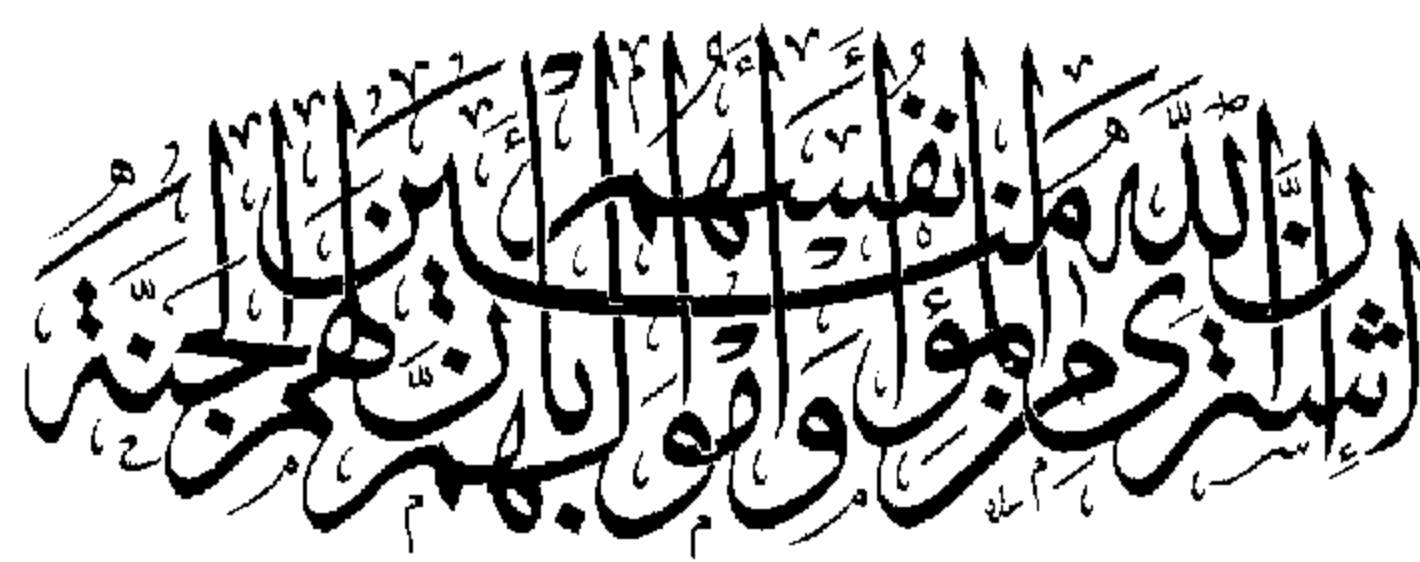 إِنَّ اللّٰهَ اشْتَرَىٰ مِنَ الْمُؤْمِنِينَ أَنْفُسَهُمْ وَأَمْوَالَهُمْ بِأَنَّ لَهُمُ الْجَنَّةَ